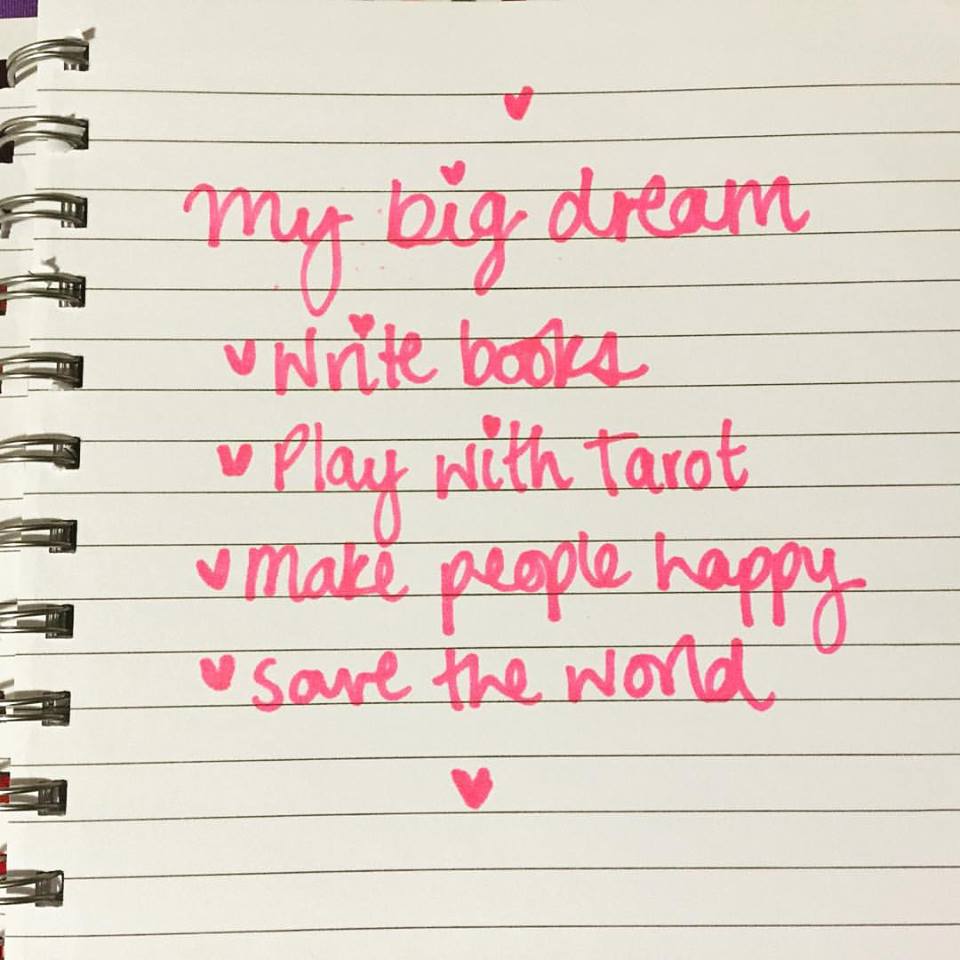 my big dream
write books
Play with Tarot
make people happy
save the world